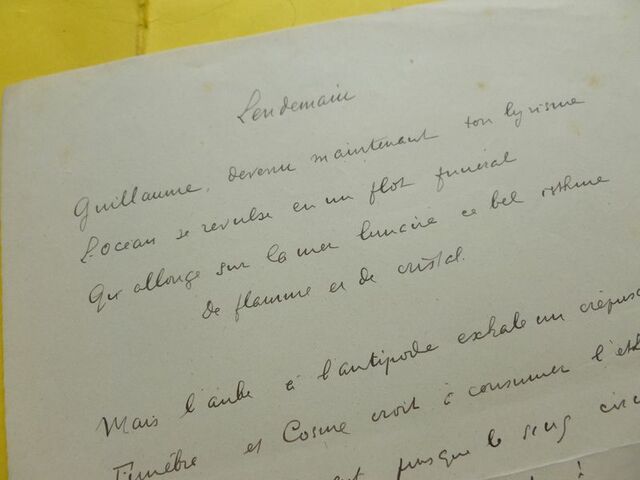 Lendemain
Guillaume, devenu maintenant ton lyrisme
L'ocean se revulse en un flot funéral
Qui allonge sur la mer lunaire ce bel isthme
De flamme et de cristal.
Mais l'aube à l'antipode exhale un crépusc
et Cosme croit à consumer l'
presque le sang circ